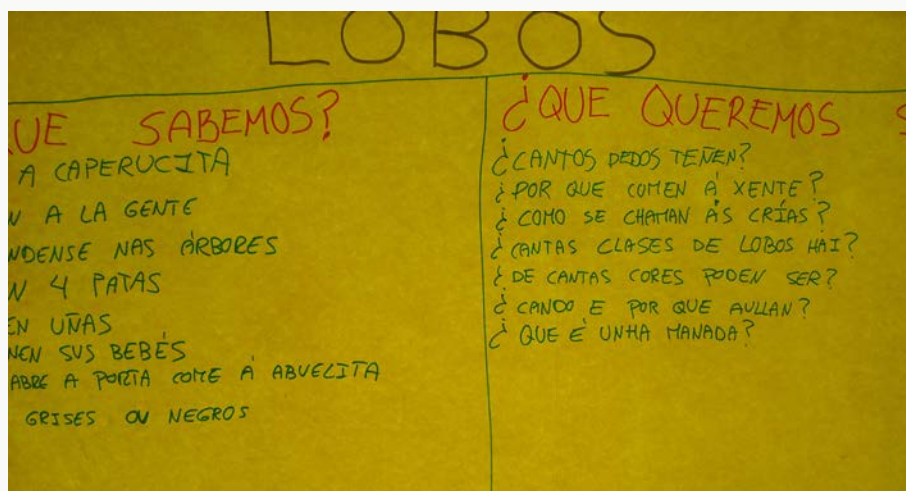 LOBOS
UE SABEMOS?
A CAPERUCITA
N A LA GENTE
NDENSE NAS ÁRBORES
N 4 PATAS
EN UÑAS
NEN SUS BEBÉS
ABRE A PORTA COME A ABUELITA
GRISES OU NEGROS
¿QUE QUEREMOS S
¿CANTOS DEDOS TEÑEN?
¿POR QUE COMEN Á XENTE?
¿COMO SE CHAMAN ÁS CRÍAS?
¿CANTAS CLASES DE LOBOS HAI?
¿DE CANTAS CORES PODEN SER?
¿CANDO E POR QUE AULLAN?
¿QUE É UNHA MANADA?